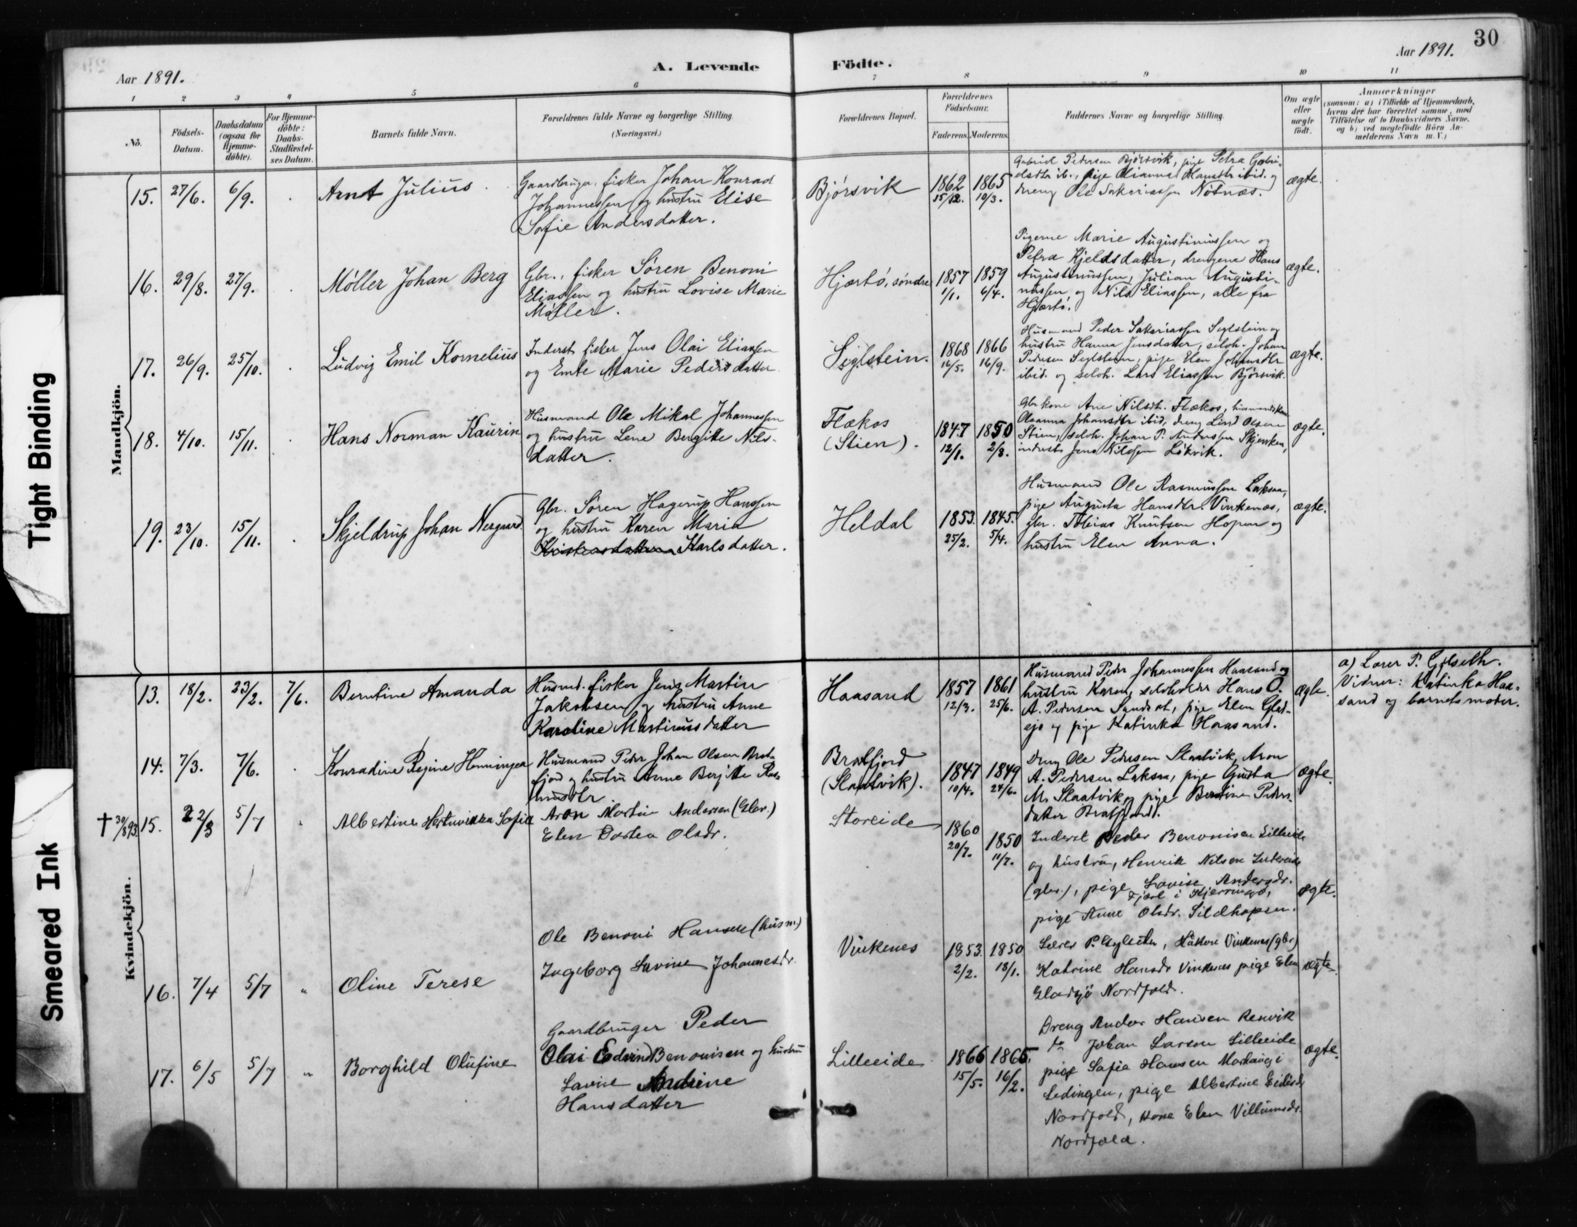 30
Aar 1891.
A. Levende
Födte.
Aar 1891.
1 2 3 4 5 6 7 8 9 10 11
No.
Födsels-
Datum.
Daabsdatum
(ogsaa for
Hjemme-
döbte).
For Hjemme-
döbte:
Daabs-
Stadfæstel-
ses Datum.
Barnets fulde Navn.
Forældrenes fulde Navne og borgerlige Stilling
(Næringsvei.)
Forældrenes Bopæl.
Forældrenes
Födselsaar.
Faderens.
Moderens.
Faddernes Navne og borgerlige Stilling.
Om ægte
eller
uægte
födt.
Anmærkninger
(saasom: a) i Tilfælde af Hjemmedaab,
hvem der har forrettet samme, med
Tilföielse af to Daabsvidners Navne,
og b) ved uegtefödte Börn An-
melderens Navn m. V.)
Mandkjön.
15. 27/6. 6/9.
Arnt Julius
Gaardbruger, fisker Johan Konrad
Johannessen og hustru Elise
Sofie Andersdatter.
Bjørsvik
1862 15/12.
1865 19/3.
Gabriel Pedersen Bjørsvik, pige Petra Gabri-
elsdtr ib., pige Olianna Hansdtr ibid. og
dreng Ole Sakariassen Nötnæs.
ægte.
16. 29/8. 27/9.
Møller Johan Berg
Gbr., fisker Søren Benoni
Eliassen og hustru Lovise Marie
Møller.
Hjærtø, søndre
1857 1/1.
1859 6/4.
Pigerne Marie Augustinussen og
Petra Kjeldsdatter, drengene Hans
Augustinussen, Julian Augusti-
nussen og Nils Eliassen, alle fra
Hjærtø.
ægte.
17. 26/9. 25/10.
Ludvig Emil Kornelius
Inderst, fisker Jens Olai Eliassen
og Marie Pedersdatter
Seglstein.
1868 16/5.
1866 16/9.
Husmand Peder Sakariassen Seglstein og
hustru Hanna Jensdatter, selvh. Johan
Pedersen Seglstein, pige Elen Johansdtr
ibid. og selvh. Lars Eliassen Bjørsvik.
ægte.
18. 4/10. 15/11.
Hans Norman Kaurin
Husmand Ole Mikal Johannessen
og hustru Lene Bergitte Nils-
datter.
Flækos
(Stien).
1847 12/1.
1850 2/8.
Gbr.kone Ane Nilsdtr. Flækos,
Johansdtr ibid, dreng Lars Olsen
Stien, selvh. Johan P. Andersen
inderst Jens Nilssen Løkvik.
ægte.
19. 23/10. 15/11.
Skjeldrup Johan Nergaard
Gbr. Søren Hagerup Hanssen
og hustru Karen Maria
Karlsdatter.
Heldal
1853. 25/2.
1845. 5/4.
Husmand Ole Rasmussen Laksaa,
pige Augusta Hansdtr. Vinkenæs,
gbr. Tobias Knutsen Hopen og
hustru Elen Anna.
ægte.
Kvindekjön.
13. 18/2. 23/2. 7/6.
Berntine Amanda
Husmd. fisker Jens Martin
Jakobsen og hustru Anne
Karoline Martinusdatter
Haasand
1857 12/3.
1861 25/6.
Husmand Peder Johannessen Haasand og
hustru Karen, selvholder Hans O.
A. Pedersen pige Elen Glad-
sjø og pige Katinka Haasand.
ægte.
a) Lærer P. Gylseth.
Vidner: Katinka Haa-
sand og barnets moder.
14. 7/3. 7/6.
Konradine Regine Henningea
Husmand Peder Johan Olsen Brat-
fjord og hustru Anne Bergitte Ras-
musdtr
Bratfjord
(Slaatvik).
1847 10/4.
1849 24/6.
Dreng Ole Pedersen Slaatvik, Aron
A. Pedersen Laksaa, pige Gusta
M. Slaatvik, pige Berntine Peders-
datter Bratfjord.
ægte.
† 30/8 93
15. 22/3 5/7
Albertine Sofie
Aron Martin Andersen (Gbr.)
Elen Dortea Olsdr.
Storeide
1860 20/7.
1850 11/7.
Inderst Peder Benonisen Lilleeide
og hustru, Henrik Nilsen
(gbr.), pige Lovise Andersdr.
Fjeld i Kjerringø,
pige Anne Olsdr. Sildhopen.
ægte.
16. 7/4 5/7 "
Oline Terese
Ole Benoni Hansen (husm)
Ingeborg Lavine Johannesdr.
Vinkenes
1853. 2/2.
1850 18/1.
Lærer P. Gylseth, Vinkenes (gbr)
Katrine Hansdr Vinkenes pige Elen
Gladsjø Nordfold.
ægte.
17. 6/5 5/7 "
Borghild Olufine
Gaardbruger Peder
Olai Edvind Benonisen og hustru
Lavine Andrine
Hansdatter
Lilleeide
1866 15/5.
1865. 16/2.
Dreng Andor Hansen Resvik
Johan Larsen Lilleeide
pige Sofie Hansen i
Lødingen, pige Albertine
Nordfold, kone Elen Villumsdr
Nordfold.
ægte.
Tight Binding
Smeared Ink